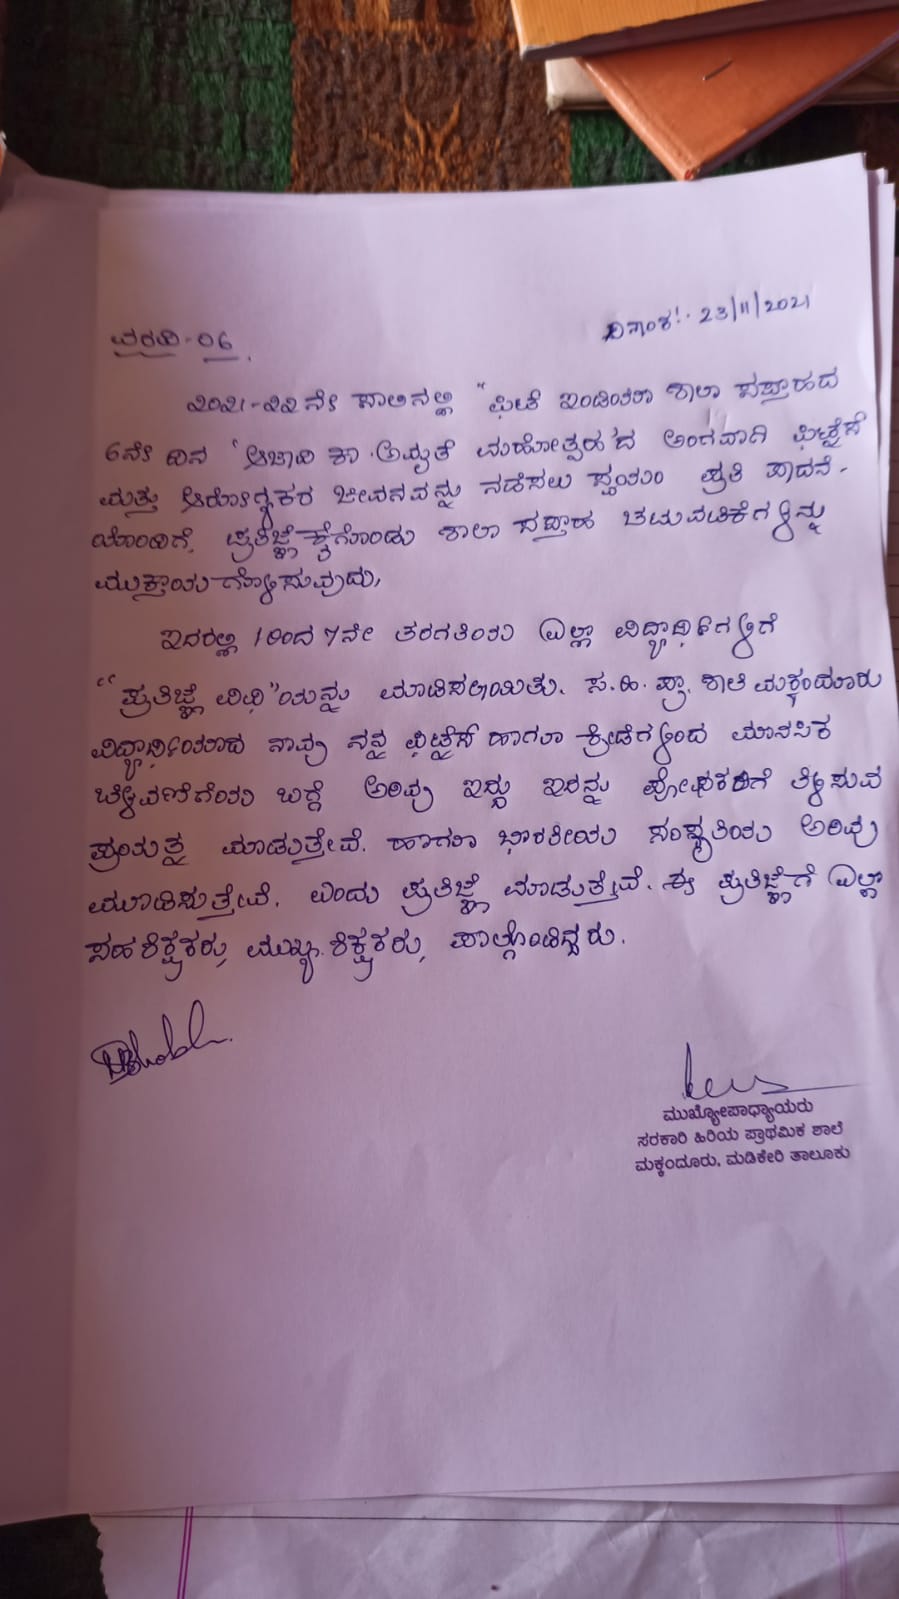 ವರದಿ-06
ದಿನಾಂಕ:. 23/11/2021
೨೦೨೧-೨೨ನೇ ಸಾಲಿನಲ್ಲಿ "ಫಿಟ್ ಇಂಡಿಯಾ ಶಾಲಾ ಸಪ್ತಾಹದ
6ನೇ ದಿನ 'ಆಜಾದಿ ಕಾ ಅಮೃತ ಮಹೋತ್ಸವ'ದ ಅಂಗವಾಗಿ ಫಿಟ್ನೆಸ್
ಮತ್ತು ಆರೋಗ್ಯಕರ ಜೀವನವನ್ನು ನಡೆಸಲು ಸ್ವಯಂ ಪ್ರತಿ ಪಾದನೆ-
ಯೊಂದಿಗೆ, ಪ್ರತಿಜ್ಞೆ ಕೈಗೊಂಡು ಶಾಲಾ ಸಪ್ತಾಹ ಚಟುವಟಿಕೆಗಳನ್ನು
ಮುಕ್ತಾಯಗೊಳಿಸುವುದು.
ಇದರಲ್ಲಿ 1ರಿಂದ 7ನೇ ತರಗತಿಯ ಎಲ್ಲಾ ವಿದ್ಯಾರ್ಥಿಗಳಿಗೆ
"ಪ್ರತಿಜ್ಞೆ ವಿಧಿ"ಯನ್ನು ಮಾಡಿಸಲಾಯಿತು. ಸ.ಹಿ.ಪ್ರಾ.ಶಾಲೆ ಮಕ್ಕಂದೂರು
ವಿದ್ಯಾರ್ಥಿಯಾದ ನಾವು ನನ್ನ ಫಿಟ್ನೆಸ್ ಹಾಗೂ ಕ್ರೀಡೆಗಳಿಂದ ಮಾನಸಿಕ
ಬೆಳವಣಿಗೆಯ ಬಗ್ಗೆ ಅರಿವು ಇದ್ದು ಇದನ್ನು ಪೋಷಕರಿಗೆ ತಿಳಿಸುವ
ಪ್ರಯತ್ನ ಮಾಡುತ್ತೇವೆ. ಹಾಗೂ ಭಾರತೀಯ ಸಂಸ್ಕೃತಿಯ ಅರಿವು
ಮೂಡಿಸುತ್ತೇವೆ. ಎಂದು ಪ್ರತಿಜ್ಞೆ ಮಾಡುತ್ತೇವೆ. ಈ ಪ್ರತಿಜ್ಞೆಗೆ ಎಲ್ಲಾ
ಸಹಶಿಕ್ಷಕರು, ಮುಖ್ಯ ಶಿಕ್ಷಕರು, ಪಾಲ್ಗೊಂಡಿದ್ದರು.
ಮುಖ್ಯೋಪಾಧ್ಯಾಯರು
ಸರಕಾರಿ ಹಿರಿಯ ಪ್ರಾಥಮಿಕ ಶಾಲೆ
ಮಕ್ಕಂದೂರು, ಮಡಿಕೇರಿ ತಾಲೂಕು